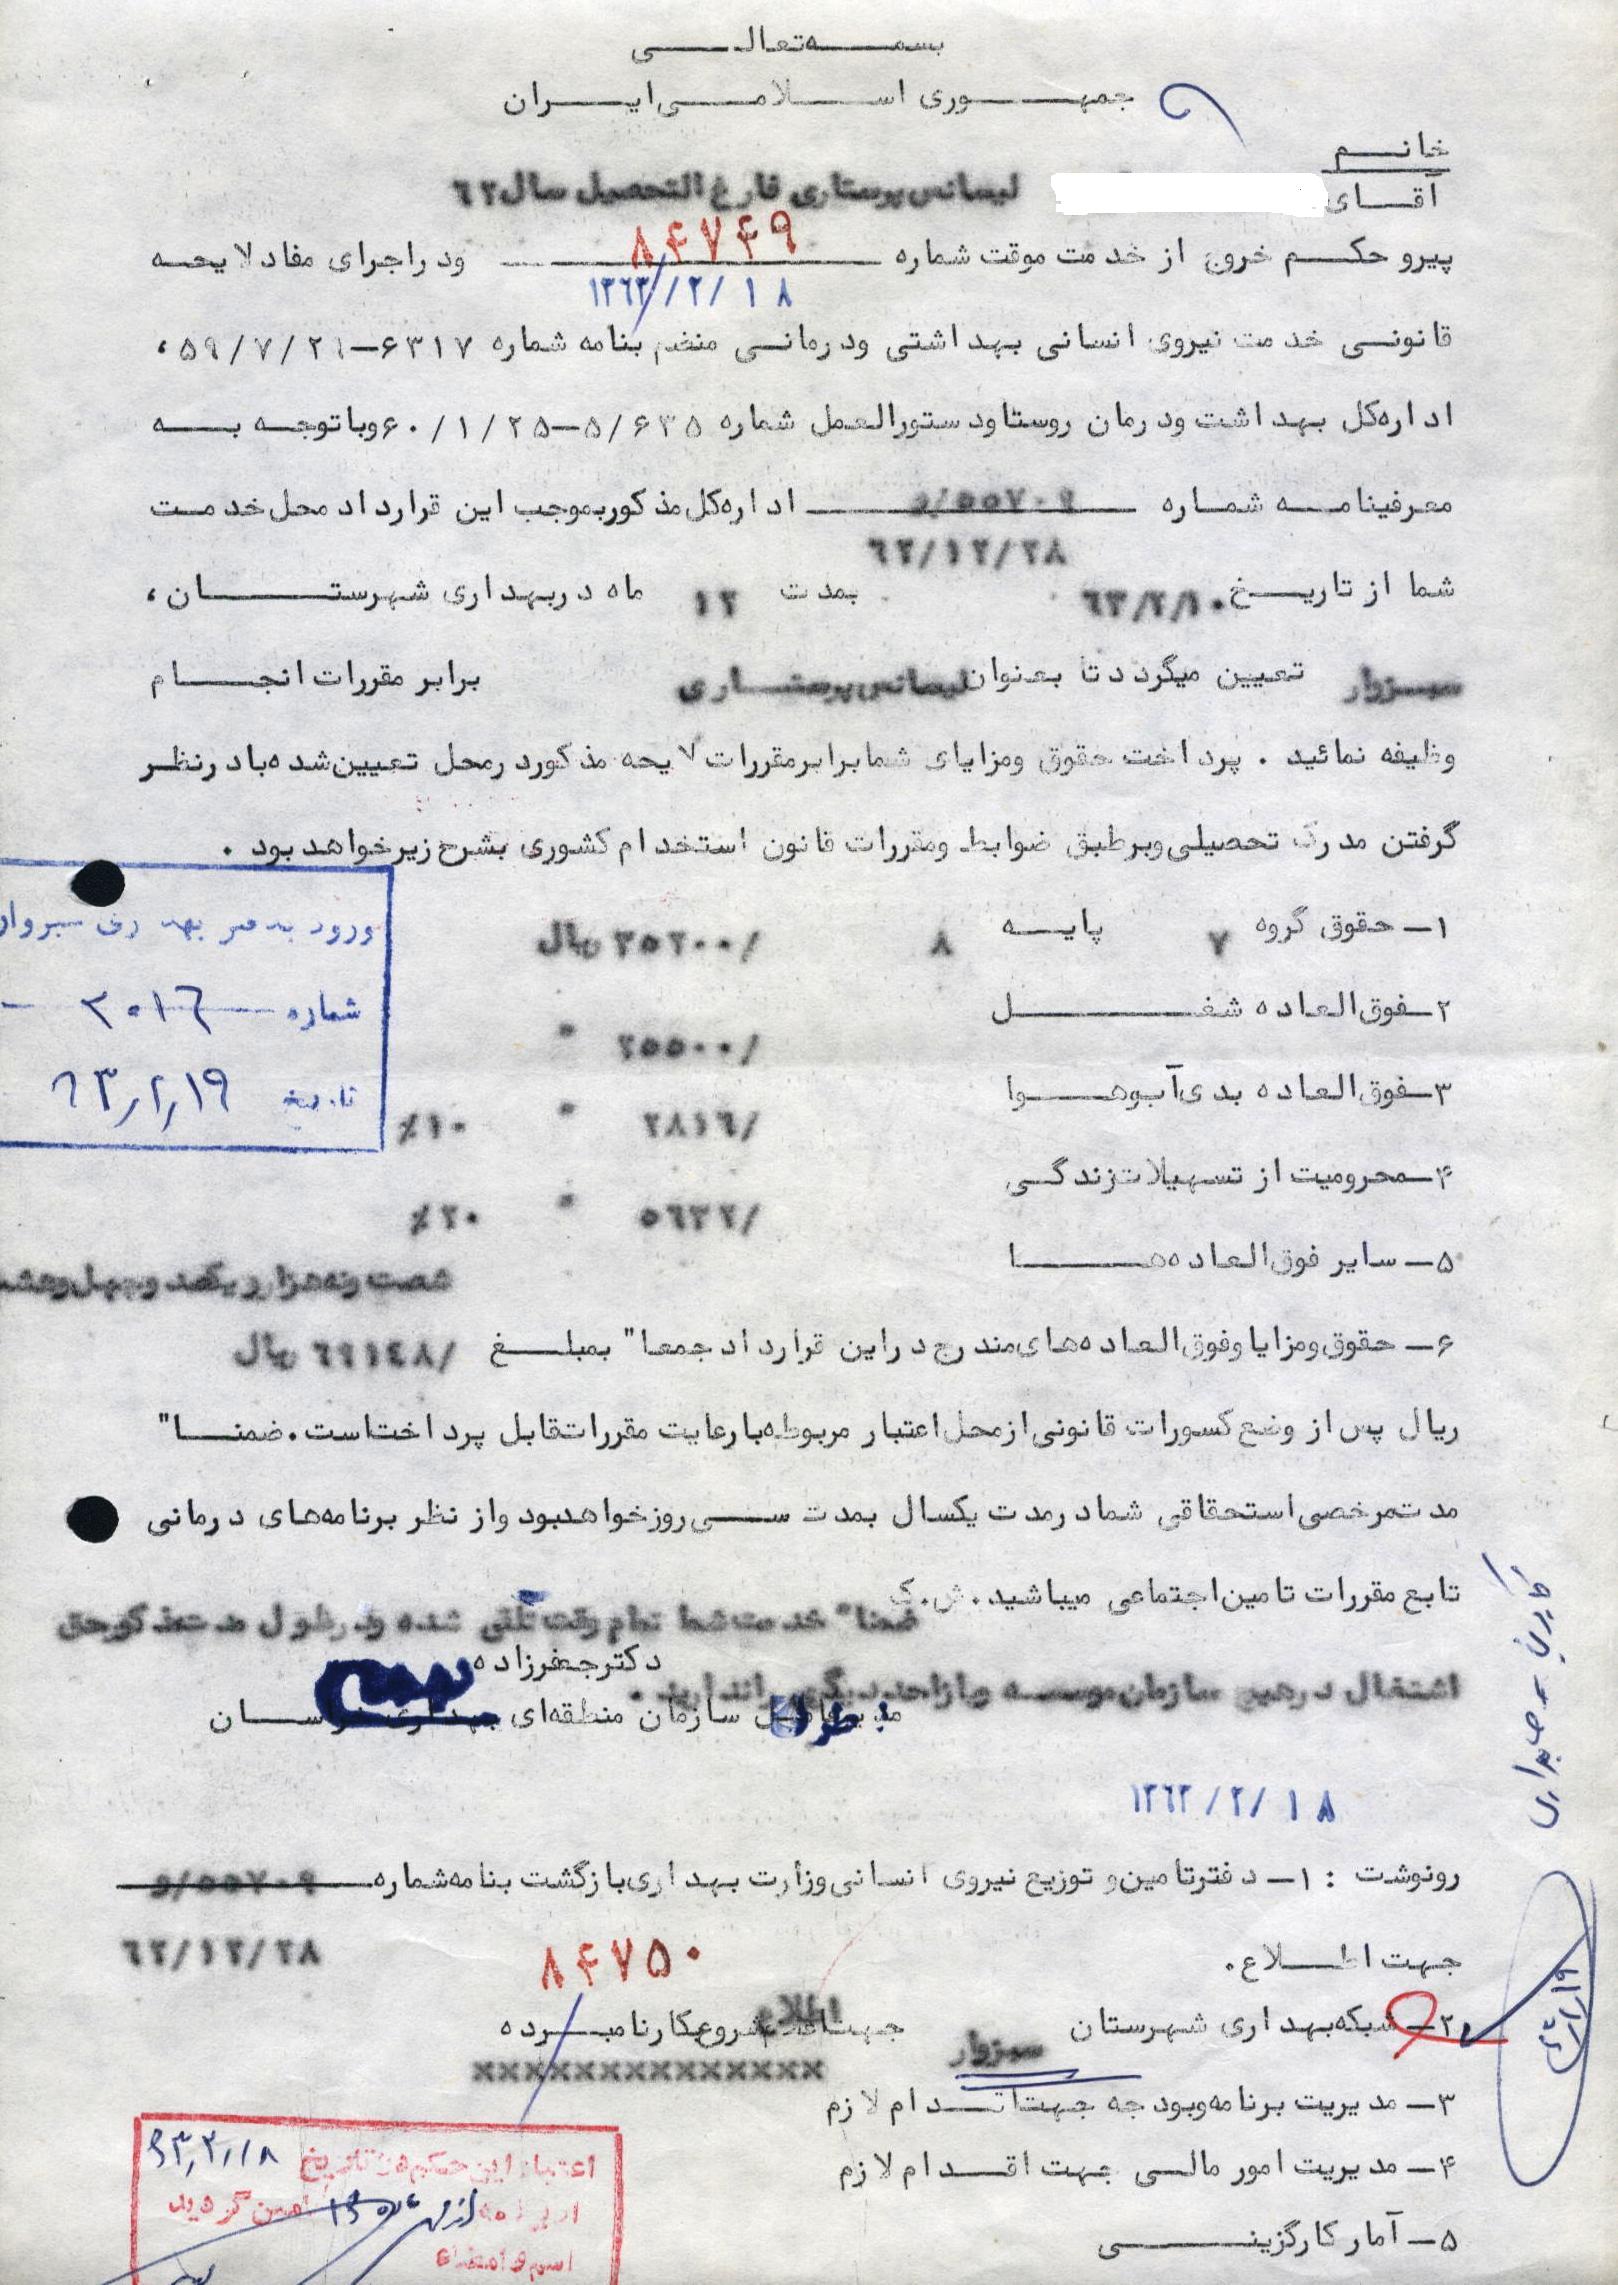 بسمه تعالی
جمهوری اسلامی ایران
خانم
آقای لیسانس پرستاری فارغ التحصیل سال ٦٢
پیرو حکم خروج از خدمت موقت شماره ۸۴۷۴۹ ودر اجرای مفاد لایحه
۱۳۶۳/۲/۱۸
قانونی خدمت نیروی انسانی بهداشتی ودرمانی منضم بنامه شماره ۶۳۱۷–۵۹/۷/۲۱ ،
اداره کل بهداشت ودرمان روستا ودستورالعمل شماره ۵/۶۳۵–۶۰/۱/۲۵ وباتوجه به
معرفینامه شماره ٥٥٧٠٩/و اداره کل مذکور بموجب این قرارداد محل خدمت
٦٢/١٢/٢٨
شما از تاریخ ٦٣/٢/١٠ بمدت ١٢ ماه در بهداری شهرستان ،
سبزوار تعیین میگردد تا بعنوان لیسانس پرستاری برابر مقررات انجام
وظیفه نمائید . پرداخت حقوق ومزایای شما برابر مقررات لایحه مذکور در محل تعیین شده با در نظر
گرفتن مدرک تحصیلی وبر طبق ضوابط ومقررات قانون استخدام کشوری بشرح زیر خواهد بود .
۱– حقوق گروه ٧ پایه ٨ ٣٥٢٠٠/ ریال
ورود بدفتر سبزوار
۲– فوق العاده شغل ٢٥٥٠٠/ "
شماره ۲۰۱۶
۳– فوق العاده بدی آب وهوا ٢٨١٦/ " ١٠٪
تاریخ ۶۳/۲/۱۹
۴– محرومیت از تسهیلات زندگی ٥٦٣٢/ " ٢٠٪
۵– سایر فوق العاده ها
شصت ونه هزار و یکصد و چهل وهشت
۶– حقوق ومزایا وفوق العاده های مندرج در این قرارداد جمعا" بمبلغ ٦٩١٤٨/ ریال
ریال پس از وضع کسورات قانونی از محل اعتبار مربوطه با رعایت مقررات قابل پرداخت است . ضمنا"
مدت مرخصی استحقاقی شما در مدت یکسال بمدت سی روز خواهد بود واز نظر برنامه های درمانی
تابع مقررات تامین اجتماعی میباشید . ش . ک
ضمنا" خدمت شما تمام وقت تلقی شده ودر طول مدت مذکور حق
اشتغال در هیچ سازمان موسسه و یا واحد دیگری را ندارید .
دکتر جعفرزاده
مدیر عامل سازمان منطقه ای بهداری خراسان
۱۳۶۳/۲/۱۸
رونوشت : ۱– دفتر تامین و توزیع نیروی انسانی وزارت بهداری بازگشت بنامه شماره ٥٥٧٠٩/و
٦٢/١٢/٢٨
جهت اطلاع .
۸۴۷۵۰
۲– شبکه بهداری شهرستان سبزوار جهت اطلاع شروع بکار نامبرده
xxxxxxxxxxxxxx
۳– مدیریت برنامه وبودجه جهت اقدام لازم
۴– مدیریت امور مالی جهت اقدام لازم
۵– آمار کارگزینی
کارگزینی – حسابداری
اعتبار این حکم از تاریخ ۶۳/۲/۱۸
تامین گردید
اسم و امضاء